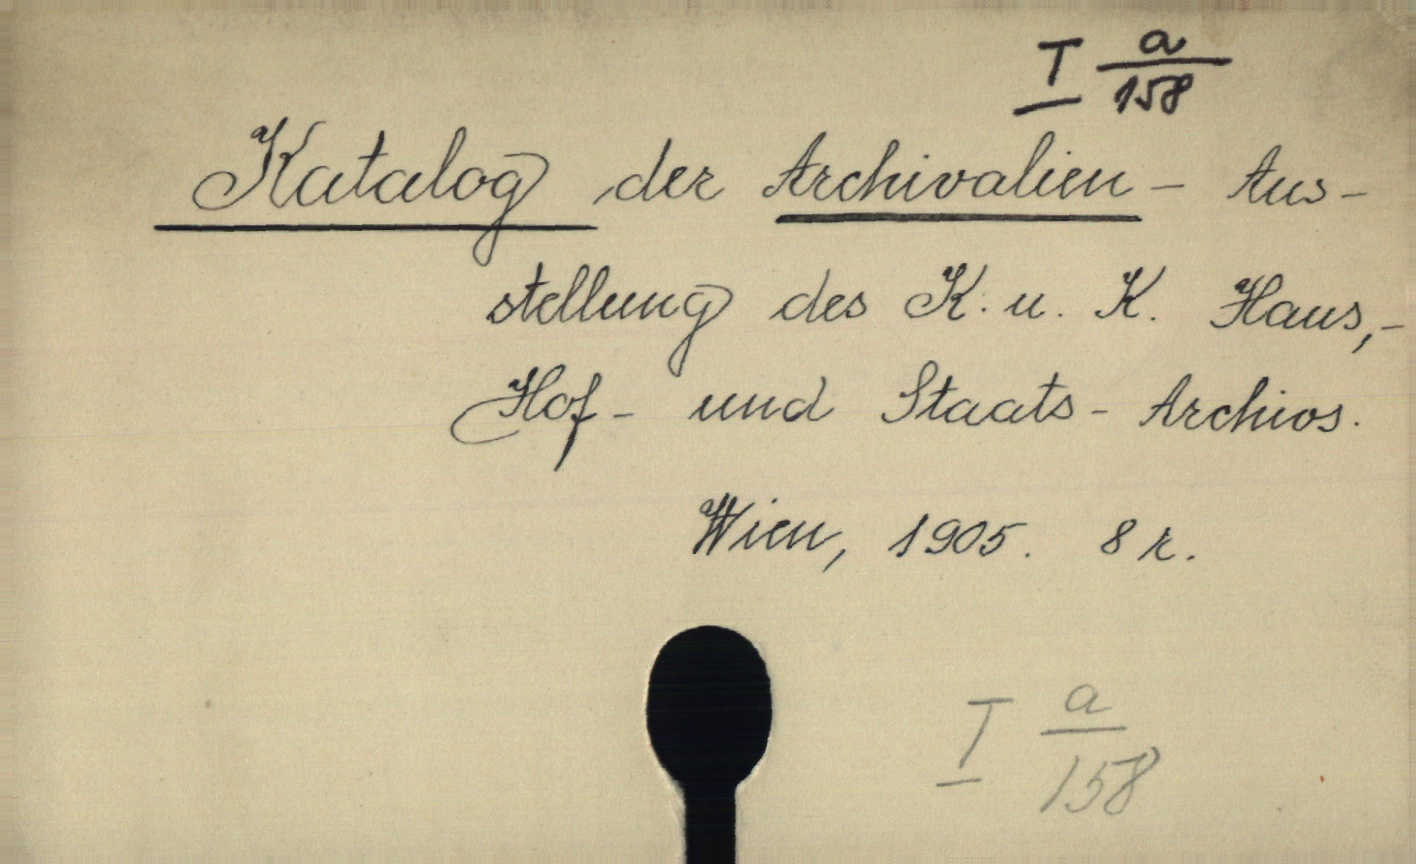 I a/158
Katalog der Archivalien - Aus-
stellung des K. u. K. Haus,-
Hof- und Staats- Archivs.
Wien, 1905. 8 r.
I a/158